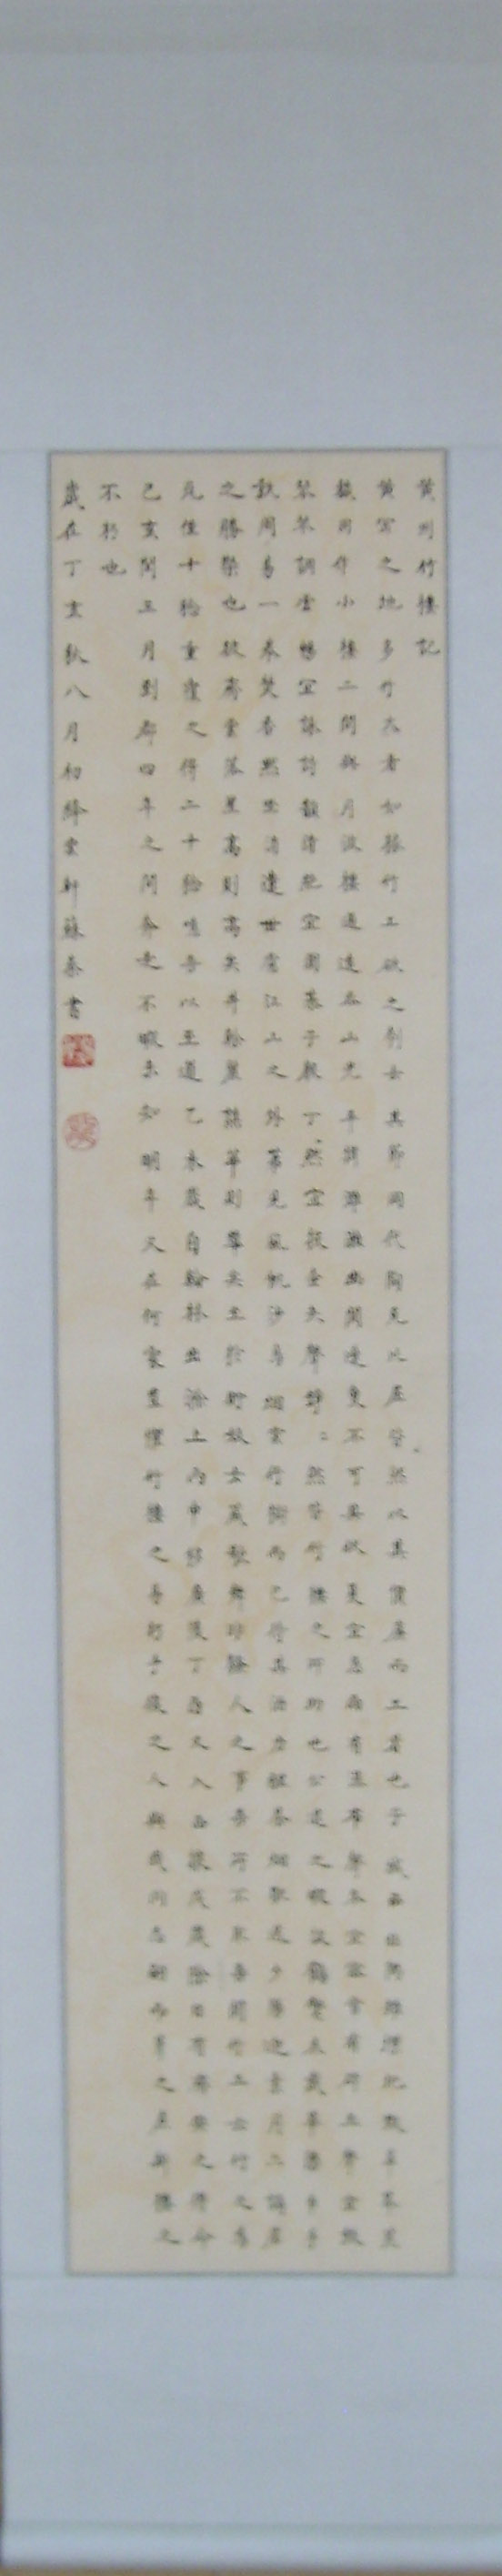 黄州竹樓記
黄岡之地多竹大者如椽竹工破之刳去其節用代陶瓦比屋皆然以其價廉而工省也予城西北隅雉堞圮毀蓁莽荒
穢因作小樓二間與月波樓通遠吞山光平挹江瀨幽闃遼夐不可具狀夏宜急雨有瀑布聲冬宜密雪有碎玉聲宜鼓
琴琴調虛暢宜詠詩韻清絕宜圍棊子聲丁〻然宜投壺矢聲錚〻然皆竹樓之所助也公退之暇披鶴氅衣戴華陽巾手
執周易一卷焚香默坐消遣世慮江山之外第見風帆沙鳥烟雲竹樹而已待其酒力醒茶烟歇送夕陽迎素月亦謫居
之勝槩也彼齊雲落星高則高矣井幹麗譙華則華矣止於貯妓女藏歌舞非騷人之事吾所不取吾聞竹工云竹之為
瓦僅十稔重覆之得二十稔噫吾以至道乙未歲自翰林出滁上丙申移廣陵丁酉又入西掖戊戌歲除日有齊安之命
己亥閏三月到郡四年之間奔走不暇未知明年又在何處豈懼竹樓之易朽乎後之人與我同志嗣而葺之庶斯樓之
不朽也
歲在丁亥秋八月初絳雲軒蘇書